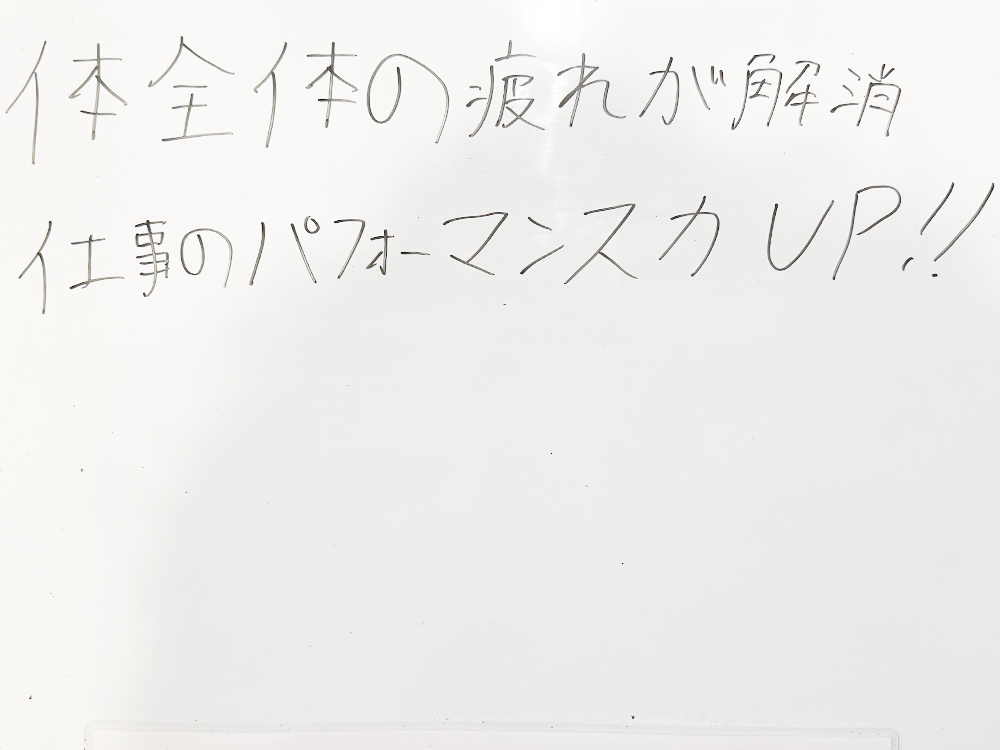 体全体の疲れが解消
仕事のパフォーマンス力UP!!